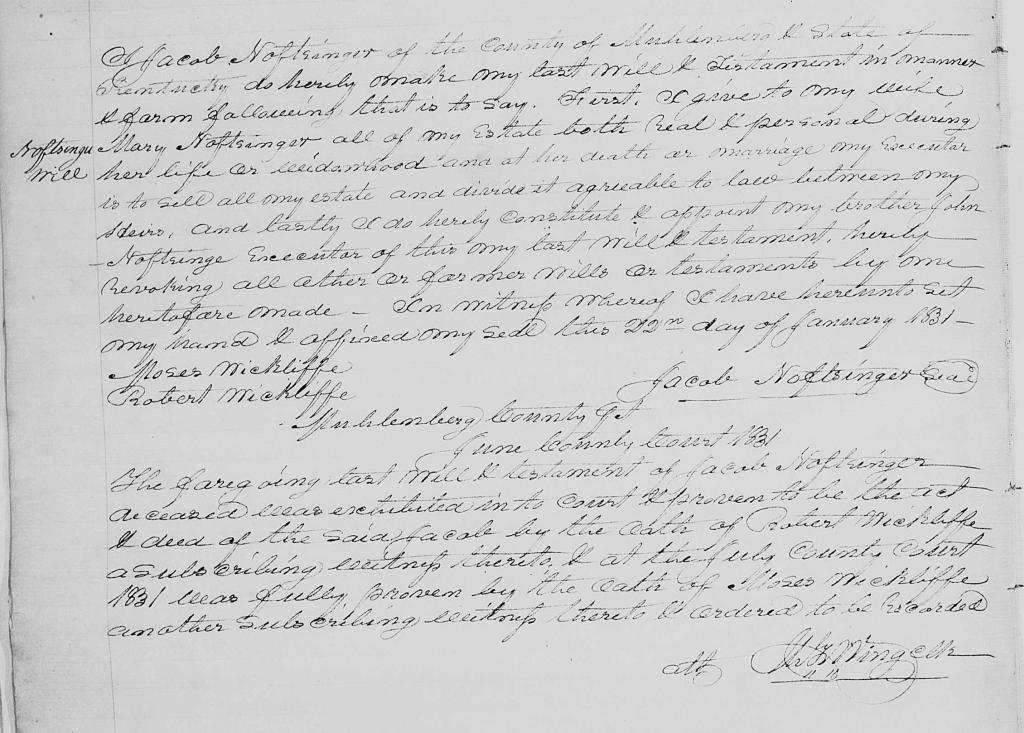 I Jacob Noftsinger of the County of Muhlenberg & State of
Kentucky do hereby make my last Will & Testament in manner
& form following, that is to say. First, I give to my wife
Noftsinger Will
Mary Noftsinger all of my Estate both real & personal during
her life or widowhood and at her death or marriage my Executor
is to sell all my estate and divide it agreeable to law between my
heirs, and lastly I do hereby Constitute & appoint my brother John
Noftsinge Executor of this my last will & testament, hereby
revoking all other or former wills or testaments by me
heretofore made – In witness whereof I have hereunto set
my hand & affixed my seal this 22nd day of January 1831 –
Moses Wickliffe
Robert Wickliffe
Jacob Noftsinger Seal
Muhlenberg County Sct
June County Court 1831
The foregoing last will & testament of Jacob Noftsinger
deceased was exhibited in to Court & proven to be the act
& deed of the said Jacob by the oath of Robert Wickliffe
a subscribing witness thereto, & at the July County Court
1831 was fully proven by the oath of Moses Wickliffe
another subscribing witness thereto & ordered to be recorded
att Wing Clk